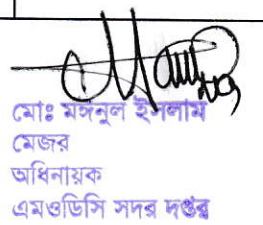 মোঃ মঈনুল ইসলাম
মেজর
অধিনায়ক
এমওডিসি সদর দপ্তর